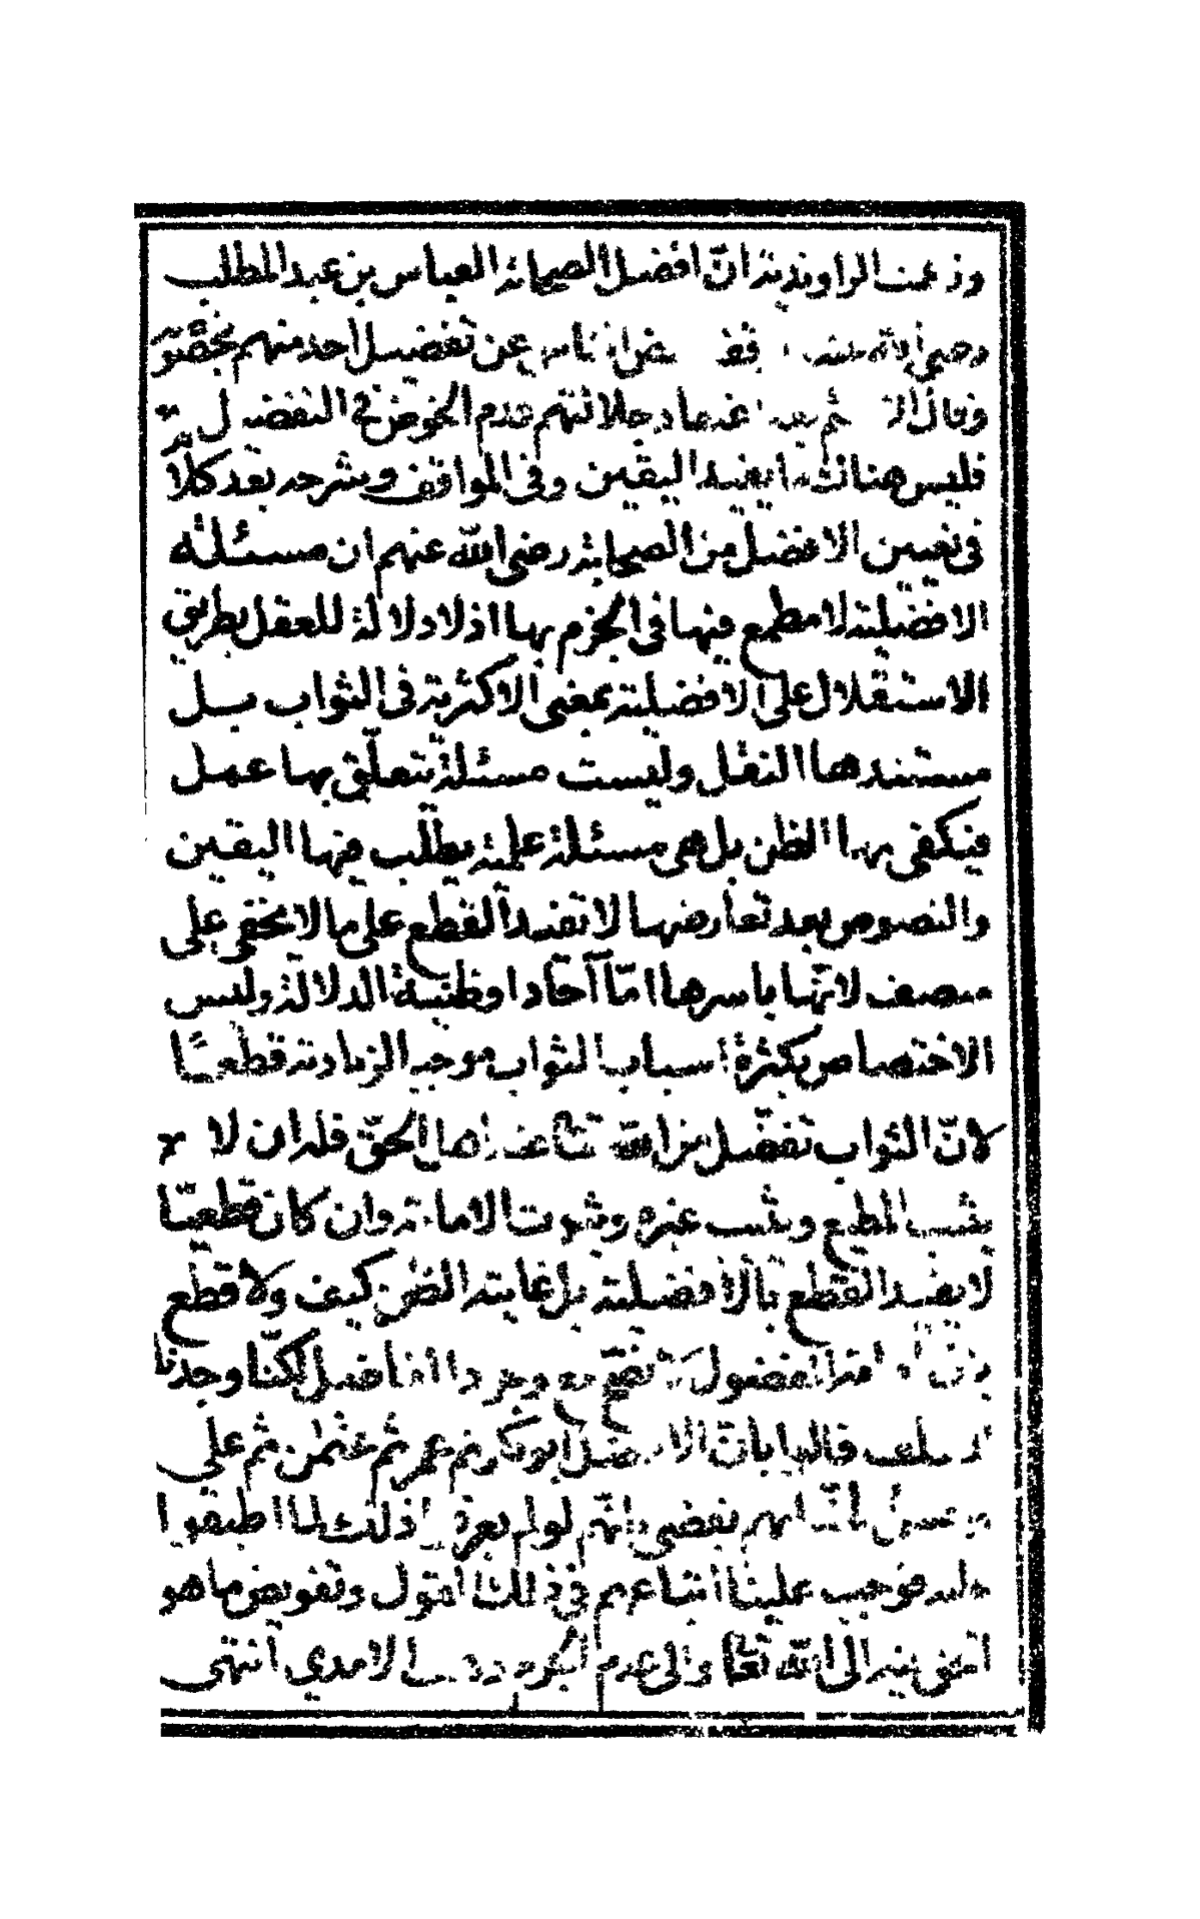 وزعمت الراوندية انّ افضل الصحابة العباس بن عبد المطلب
رضي الله عنه بعض الناس عن تفضيل احد منهم بخصّو
وقال ثم بعد رجلالتهم عدم الخوض في التفضيل
فليس هناك ما يفيد اليقين وفي المواقف وشرحه بعد كلا
في تعيين الافضل من الصحابة رضي الله عنهم ان مسئلة
الافضلية لا مطمع فيها في الجزم بها اذ لا دلالة للعقل بطريق
الاستقلال على الافضلية بمعنى الاكثرية في الثواب بل
مستندها النقل وليست مسئلة يتعلّق بها عمل
فيكفي بها الظن بل هي مسئلة علمية يطلب فيها اليقين
والنصوص بعد تعارضها لا تفيد القطع على ما لا يخفى على
منصف لانّها باسرها امّا آحاد او ظنية الدلالة وليس
الاختصاص بكثرة اسباب الثواب موجب الزيادته قطعيًا
لانّ الثواب تفضّل من الله تعالى عند اهل الحقّ فله ان لا
يثيب المطيع ويثيب غيره وثبوت الامامة وان كان قطعيّا
لا يفيد القطع بالافضلية بل غايته الظن كيف ولا قطع
بانّ المفضول لا تصّح مع وجود الفاضل لكنّا وجدنا
السلف قالوا بانّ الافضل ابو بكر ثم عمر ثم عثمن ثم علي
وحسن ظنّنا بهم يقضي بانّهم لو لم يعرفوا ذلك لما اطبقوا
عليه فوجب علينا اتباعهم في ذلك القول وتفويض ما هو
الحق فيه الى الله تعالى والى عدم الامدي انتهى